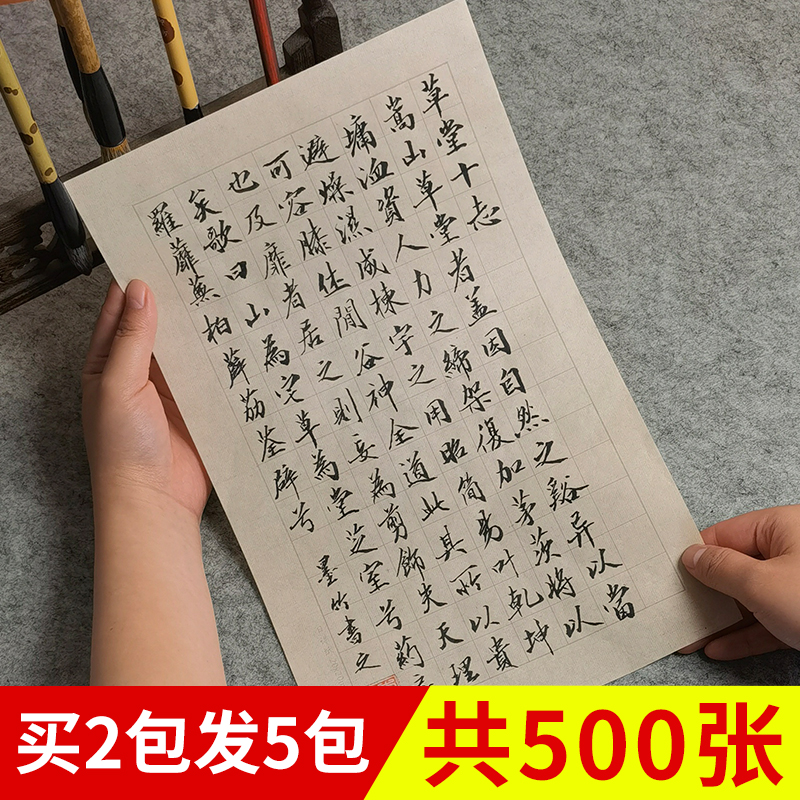 草堂十志
嵩山草堂者盖因自然之谿异以當
墉洫資人力之締架復加茅茨將以
避燥濕成棟宇之用昭简易叶乾坤
可容膝休閒谷神全道此其所以貴
也及靡者居之則妄為剪飾失天理
矣歌曰山為宅草為堂芝室兮药
羅蘼蕪柏薜荔荃壁兮 墨竹書之
买2包发5包
共500张